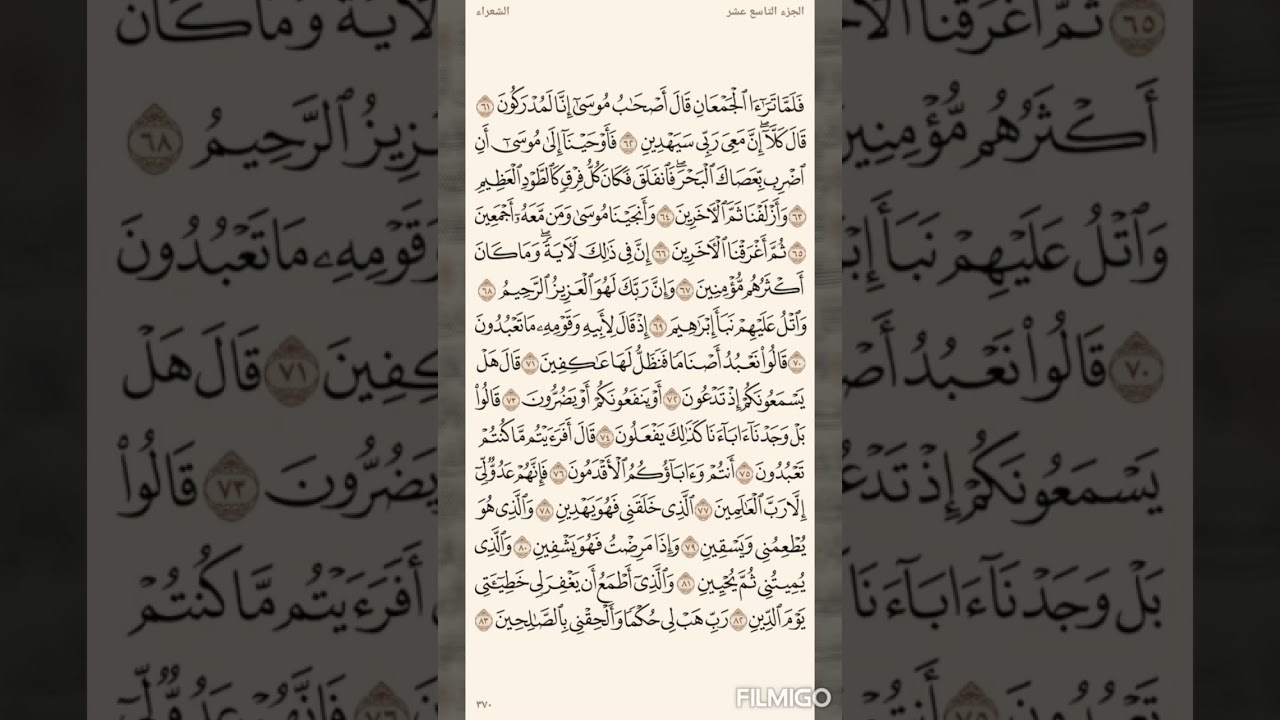 الجزء التاسع عشر
الشعراء
فَلَمَّا تَرَٰٓءَا ٱلْجَمْعَانِ قَالَ أَصْحَٰبُ مُوسَىٰٓ إِنَّا لَمُدْرَكُونَ ٦١
قَالَ كَلَّآ ۖ إِنَّ مَعِىَ رَبِّى سَيَهْدِينِ ٦٢ فَأَوْحَيْنَآ إِلَىٰ مُوسَىٰٓ أَنِ
ٱضْرِب بِّعَصَاكَ ٱلْبَحْرَ ۖ فَٱنفَلَقَ فَكَانَ كُلُّ فِرْقٍ كَٱلطَّوْدِ ٱلْعَظِيمِ
٦٣ وَأَزْلَفْنَا ثَمَّ ٱلْءَاخَرِينَ ٦٤ وَأَنجَيْنَا مُوسَىٰ وَمَن مَّعَهُۥٓ أَجْمَعِينَ
٦٥ ثُمَّ أَغْرَقْنَا ٱلْءَاخَرِينَ ٦٦ إِنَّ فِى ذَٰلِكَ لَءَايَةً ۖ وَمَا كَانَ
أَكْثَرُهُم مُّؤْمِنِينَ ٦٧ وَإِنَّ رَبَّكَ لَهُوَ ٱلْعَزِيزُ ٱلرَّحِيمُ ٦٨
وَٱتْلُ عَلَيْهِمْ نَبَأَ إِبْرَٰهِيمَ ٦٩ إِذْ قَالَ لِأَبِيهِ وَقَوْمِهِۦ مَا تَعْبُدُونَ
٧٠ قَالُوا۟ نَعْبُدُ أَصْنَامًا فَنَظَلُّ لَهَا عَٰكِفِينَ ٧١ قَالَ هَلْ
يَسْمَعُونَكُمْ إِذْ تَدْعُونَ ٧٢ أَوْ يَنفَعُونَكُمْ أَوْ يَضُرُّونَ ٧٣ قَالُوا۟
بَلْ وَجَدْنَآ ءَابَآءَنَا كَذَٰلِكَ يَفْعَلُونَ ٧٤ قَالَ أَفَرَءَيْتُم مَّا كُنتُمْ
تَعْبُدُونَ ٧٥ أَنتُمْ وَءَابَآؤُكُمُ ٱلْأَقْدَمُونَ ٧٦ فَإِنَّهُمْ عَدُوٌّ لِّىٓ
إِلَّا رَبَّ ٱلْعَٰلَمِينَ ٧٧ ٱلَّذِى خَلَقَنِى فَهُوَ يَهْدِينِ ٧٨ وَٱلَّذِى هُوَ
يُطْعِمُنِى وَيَسْقِينِ ٧٩ وَإِذَا مَرِضْتُ فَهُوَ يَشْفِينِ ٨٠ وَٱلَّذِى
يُمِيتُنِى ثُمَّ يُحْيِينِ ٨١ وَٱلَّذِىٓ أَطْمَعُ أَن يَغْفِرَ لِى خَطِيٓـَٔتِى
يَوْمَ ٱلدِّينِ ٨٢ رَبِّ هَبْ لِى حُكْمًا وَأَلْحِقْنِى بِٱلصَّٰلِحِينَ ٨٣
٣٧٠
FILMIGO